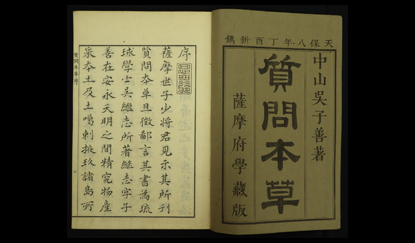 天保八年丁酉新鐫
中山吳子善著
質問本草
薩摩府學藏版
序
薩摩世子少將君見示其所刋
質問本草且徵鄙言其書為琉
球學士吳繼志所著繼志字子
善在安永天明之間精究物產
采本土及土噶剌掖玖諸島所